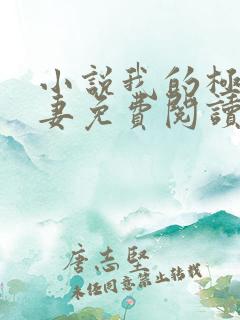 小說我的極
妻免費閱讀
唐志堅
未經同意禁止轉載